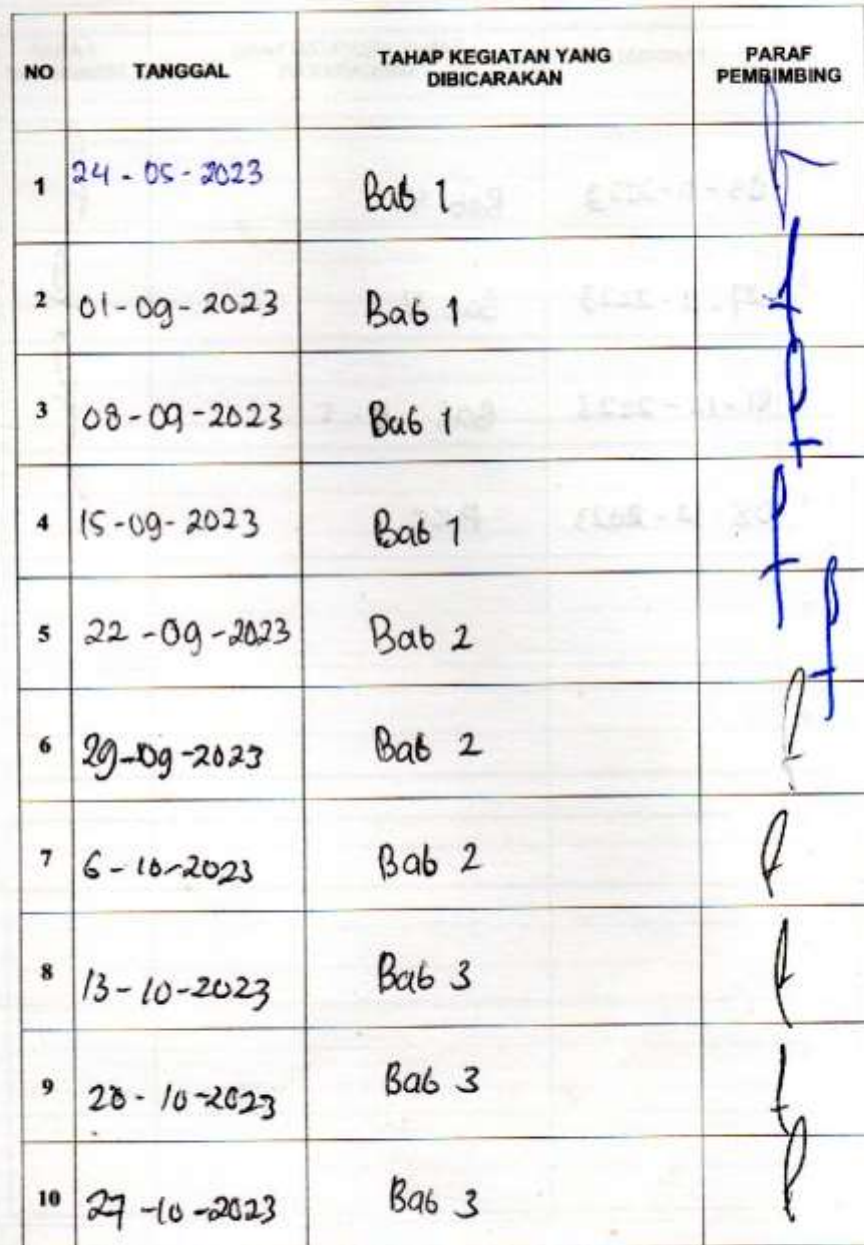 NO TANGGAL TAHAP KEGIATAN YANG DIBICARAKAN PARAF PEMBIMBING
1 24-05-2023 Bab 1
2 01-09-2023 Bab 1
3 08-09-2023 Bab 1
4 15-09-2023 Bab 1
5 22-09-2023 Bab 2
6 29-09-2023 Bab 2
7 6-10-2023 Bab 2
8 13-10-2023 Bab 3
9 20-10-2023 Bab 3
10 27-10-2023 Bab 3